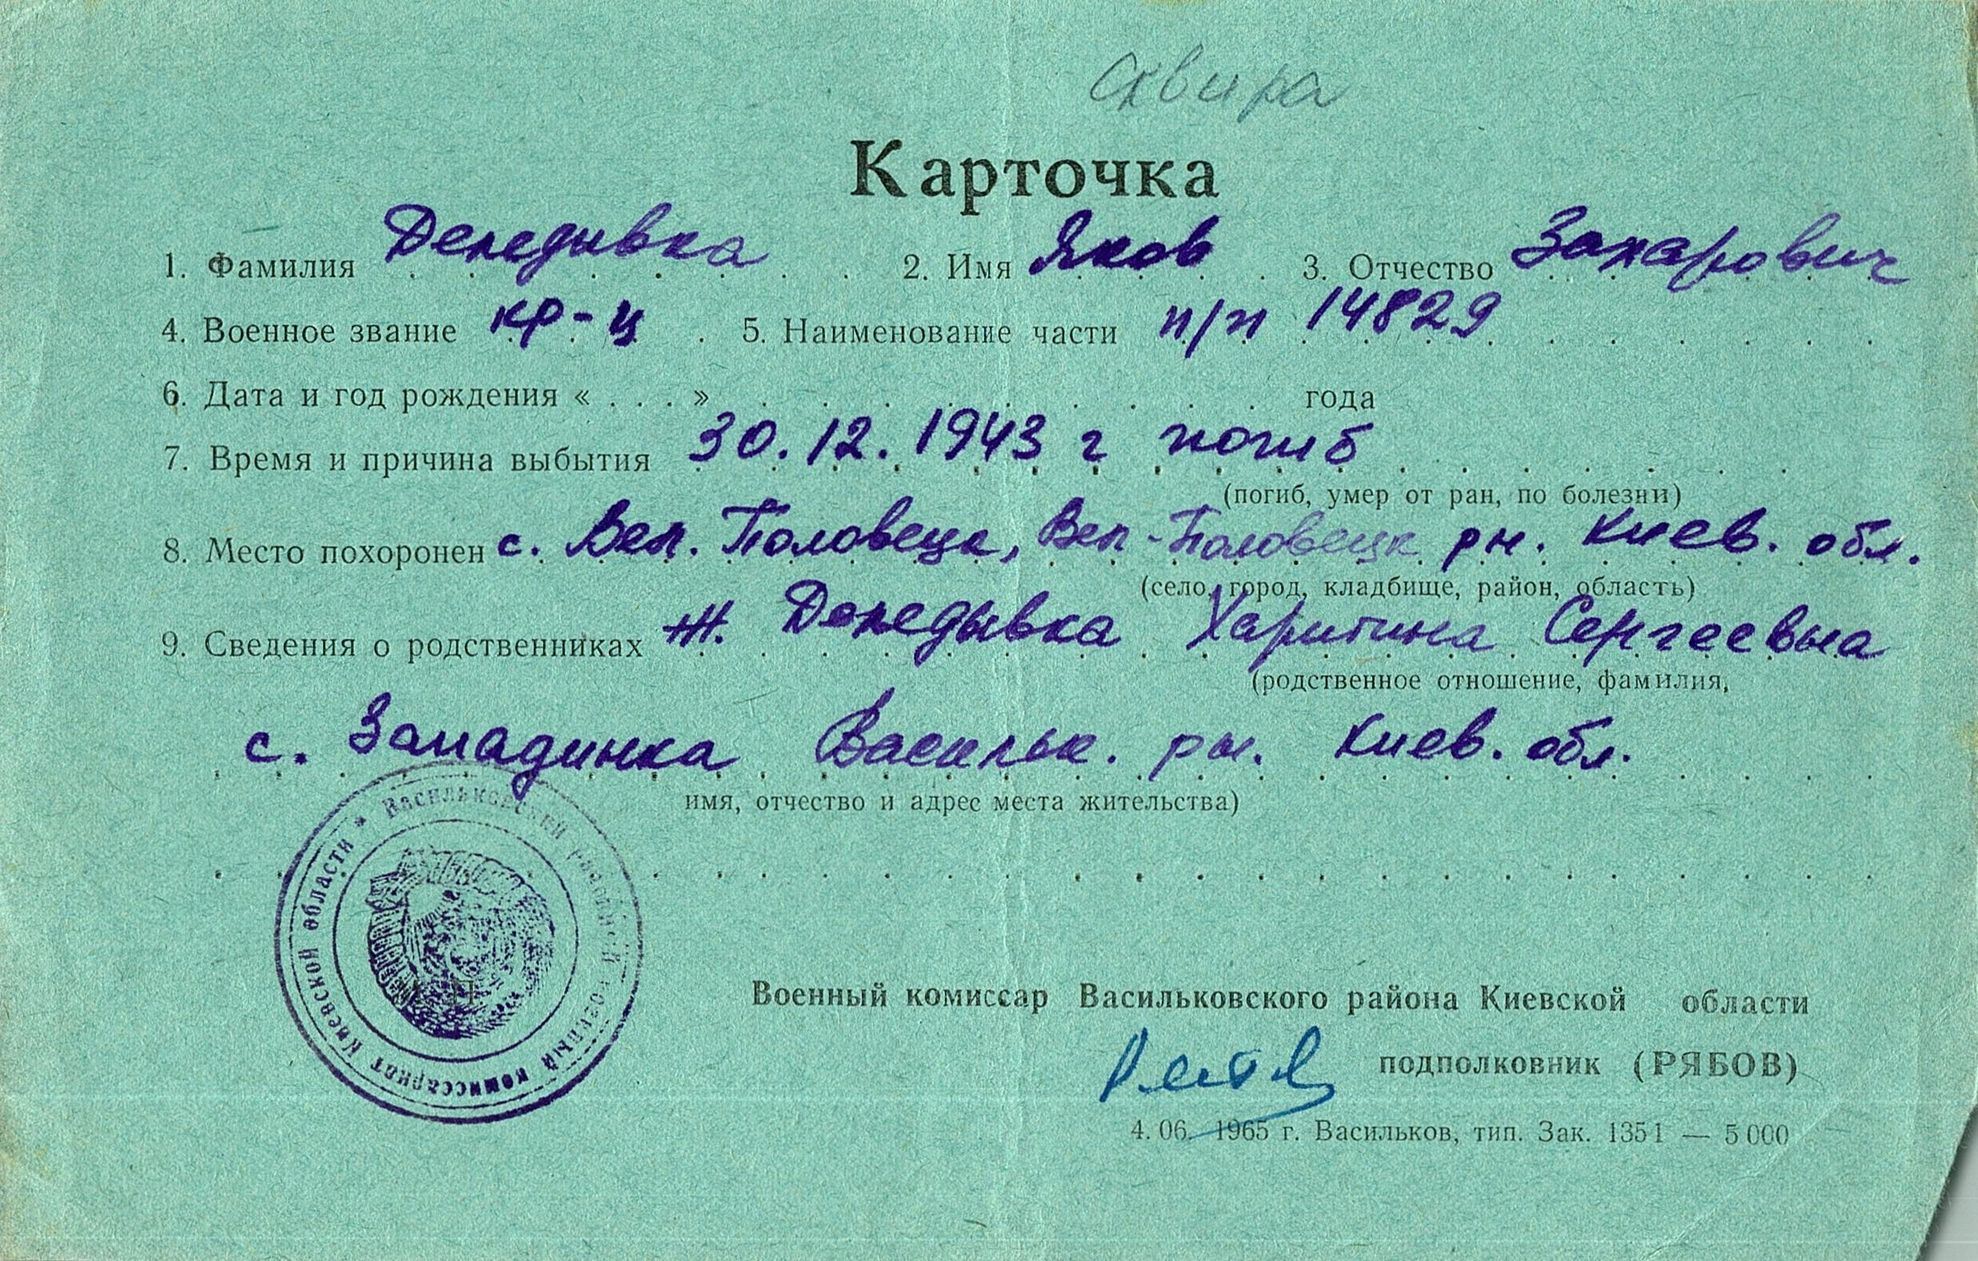 Сквира
Карточка
1. Фамилия Деледывка 2. Имя Яков 3. Отчество Захарович
4. Военное звание кр-ц 5. Наименование части п/п 14829
6. Дата и год рождения « . . . » года
7. Время и причина выбытия 30.12.1943 г погиб
(погиб, умер от ран, по болезни)
8. Место похоронен с. Вел. Половецк, Вел-Половецк рн. Киев. обл.
(село, город, кладбище, район, область)
9. Сведения о родственниках ж. Деледывка Харитина Сергеевна
(родственное отношение, фамилия,
с. Западинка Васильк. рн. Киев. обл.
имя, отчество и адрес места жительства)
* Васильковский районный военный комиссариат Киевской области
Военный комиссар Васильковского района Киевской области
подполковник (РЯБОВ)
4.06. 1965 г. Васильков, тип. Зак. 1351 — 5000